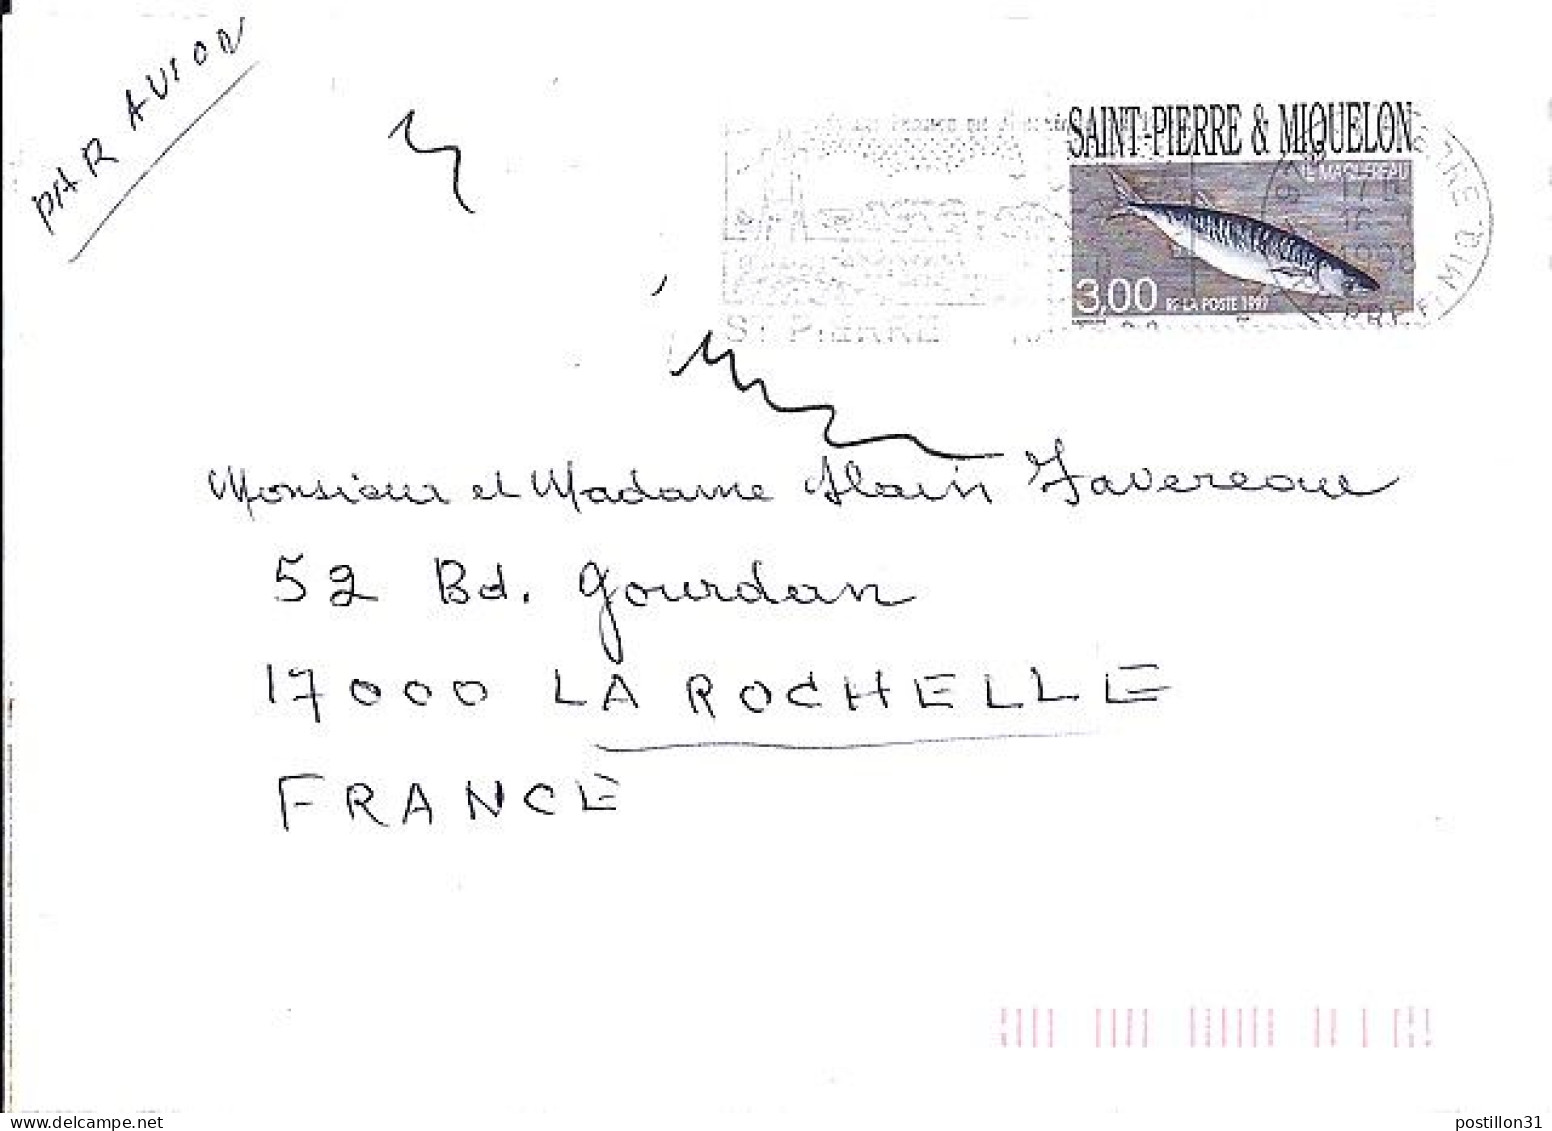 PAR AVION
SAINT-PIERRE & MIQUELON
LE MAQUEREAU
3,00 RF LA POSTE 1997
17 H
16-1
1998
ST PIERRE
Monsieur et Madame Alain Favereau
52 Bd. Gourdan
17000 LA ROCHELLE
FRANCE
www.delcampe.net
postillon31